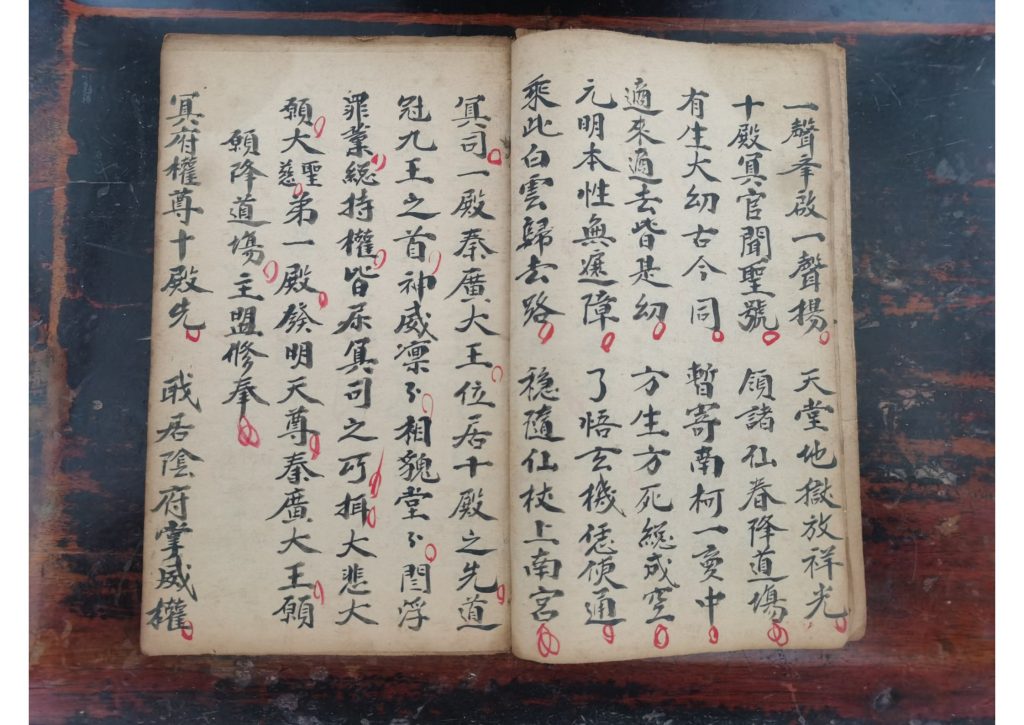 一聲奉啟一聲揚 天堂地獄放祥光
十殿冥官聞聖號 領諸仙眷降道場
有生大幻古今同 暫寄南柯一夢中
適來適去皆是幻 方生方死總成空
元明本性無遮障 了悟玄機恁便通
乘此白雲歸去路 穩隨仙杖上南宮
冥司一殿秦廣大王位居十殿之先道
冠九王之首神威凛〻相貌堂〻閻浮
罪業総持權皆属冥司之所 大悲大
願大聖慈第一殿發明天尊秦廣大王願
願降道塲主盟修奉
冥府權尊十殿先 我居陰府掌威權